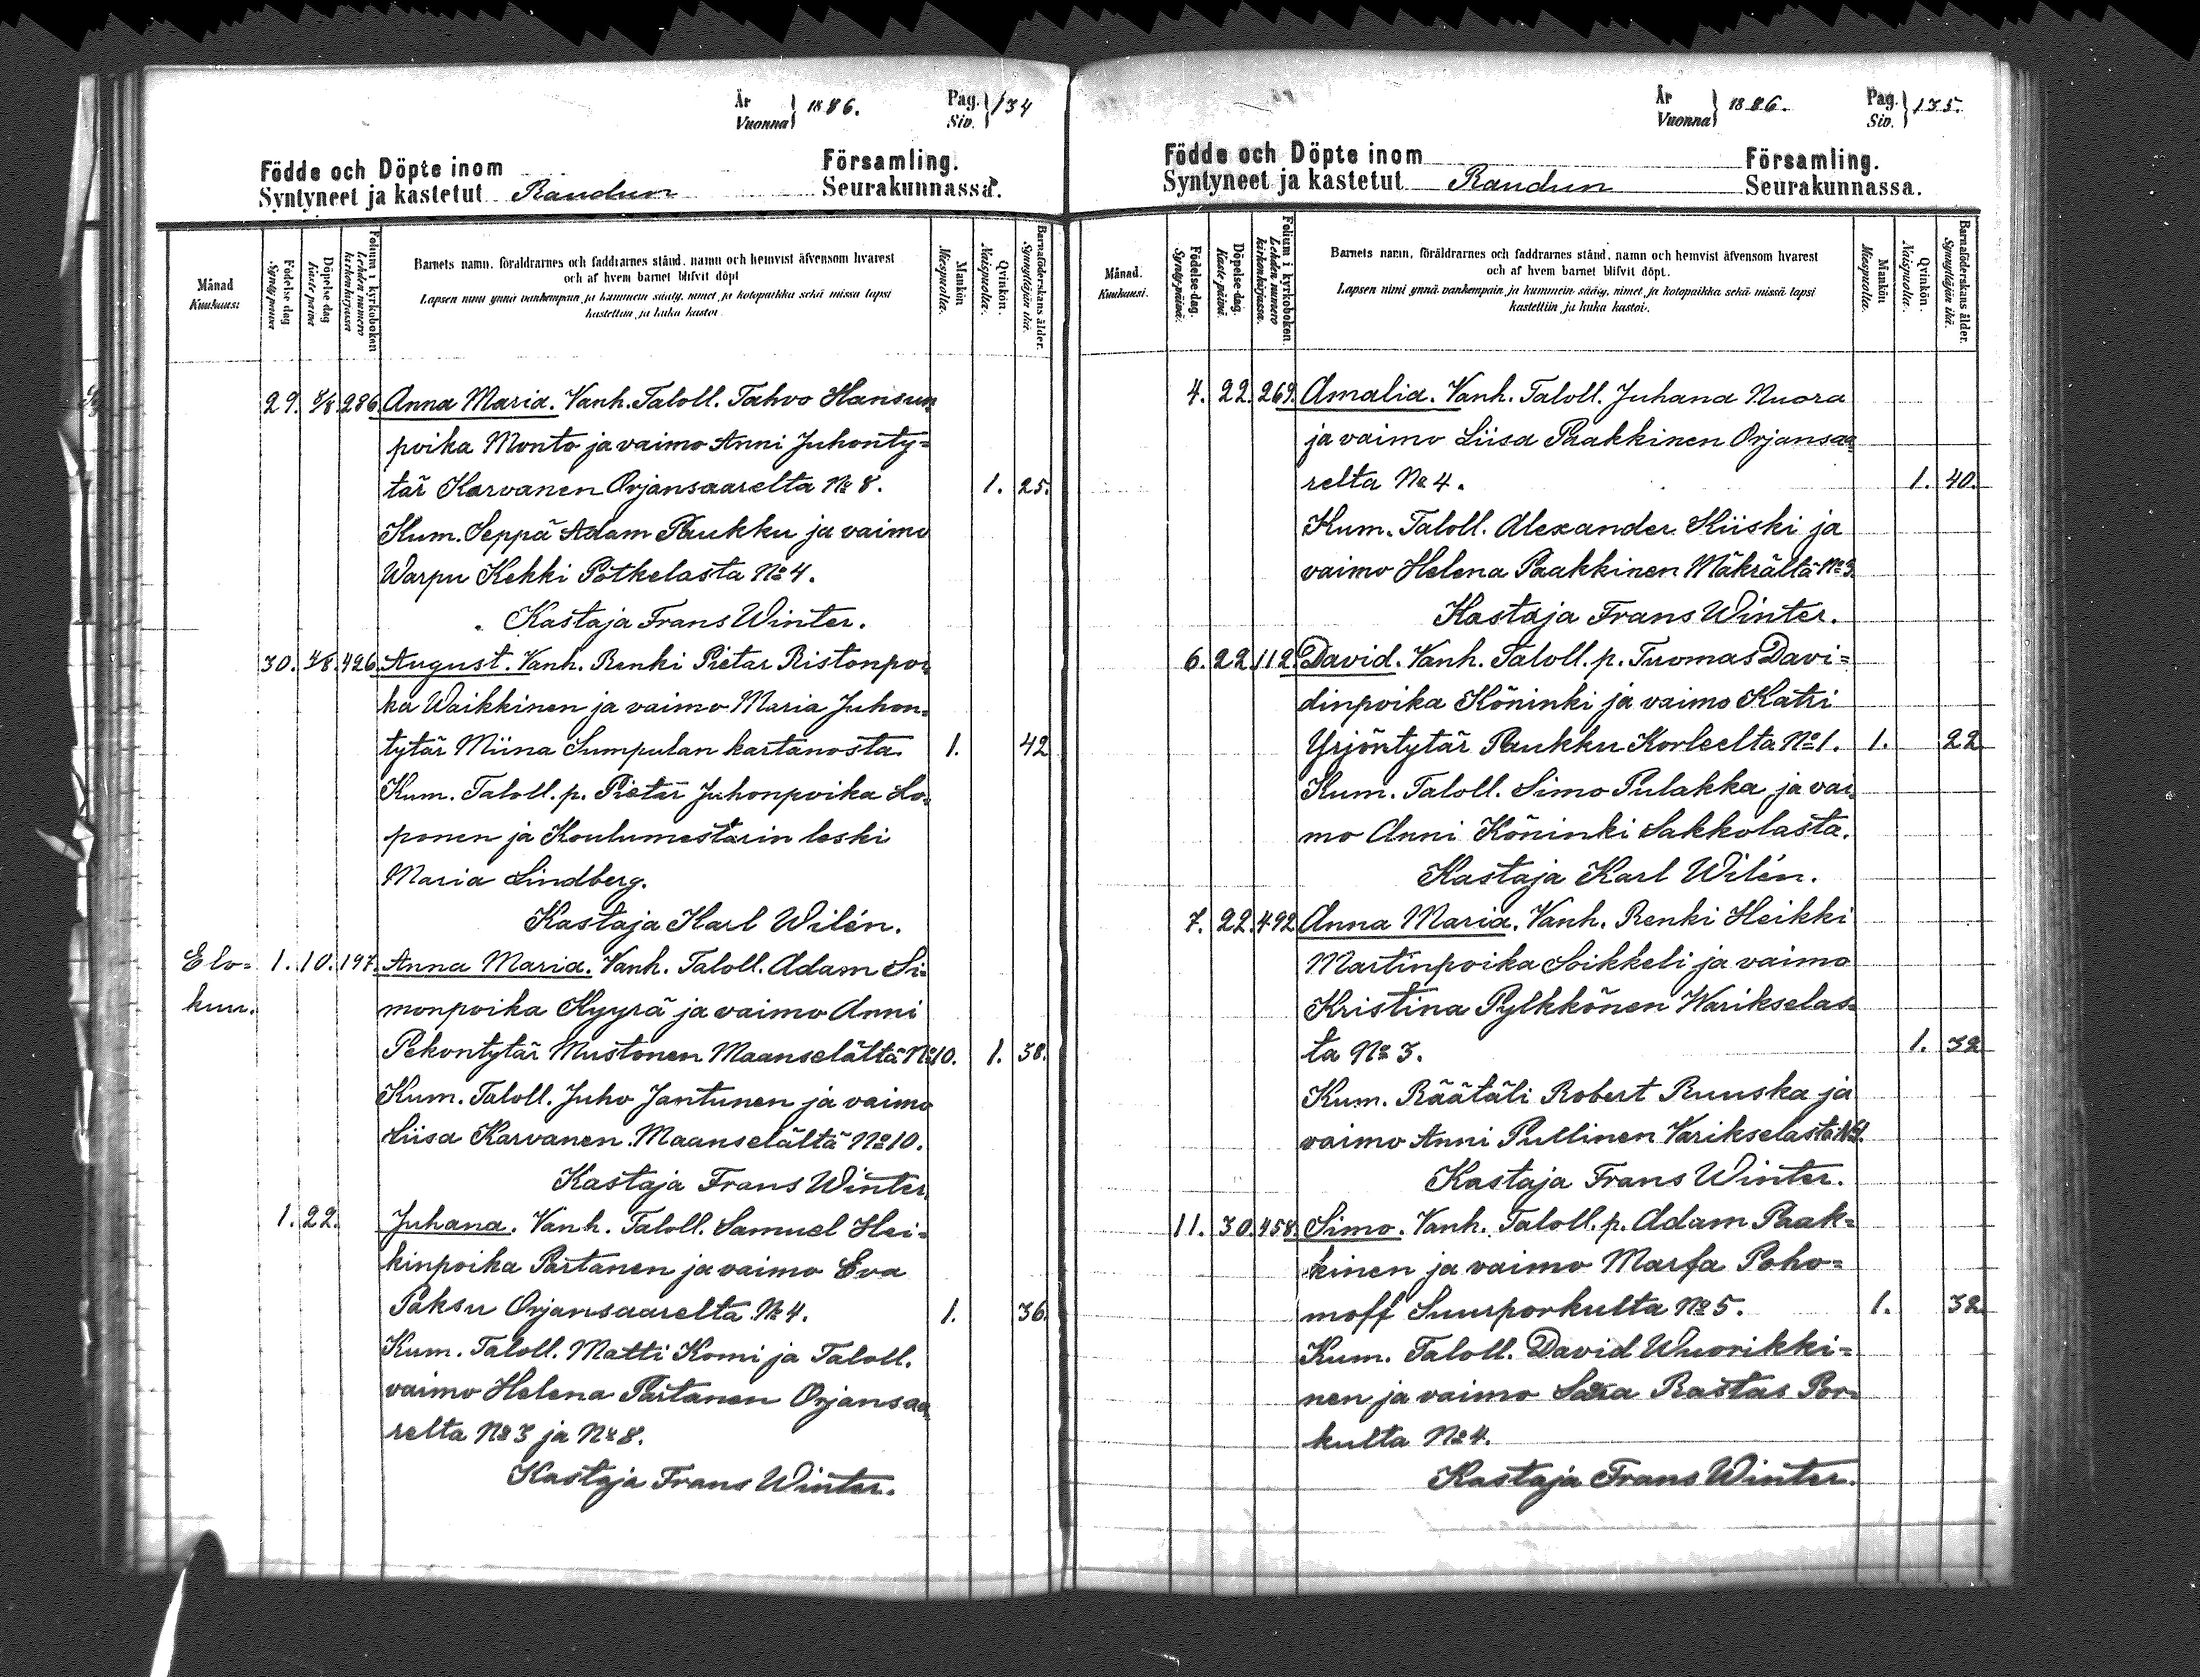 År
Vuonna } 1886.
Pag.
Siv. } 134
Födde och Döpte inom Församling.
Syntyneet ja kastetut Raudun Seurakunnassa.
Månad
Kuukausi
Födelse dag
Syntypäivä
Döpelse dag
Kaste päivä
Folium i kyrkoboken
Lehden numero kirkonkirjassa
Barnets namn, föräldrarnes och faddrarnes stånd, namn och hemvist äfvensom hvarest
och af hvem barnet blifvit döpt
Lapsen nimi ynnä vanhempain ja kummein sääty, nimet ja kotopaikka sekä missä lapsi
kastettiin ja kuka kastoi
Mankön
Miespuolta.
Qvinkön.
Naispuolta.
Barnaföderskans ålder.
Synnyttäjän ikä.
29. 8/8 286 Anna Maria. Vanh. Taloll. Tahvo Hansun
poika Monto ja vaimo Anni Juhonty=
tär Karvanen Orjansaarelta № 8. 1. 25.
Kum. Seppä Adam Paukku ja vaimo
Warpu Kekki Potkelasta № 4.
Kastaja Frans Winter.
30. /8 426 August. Vanh. Renki Pietar Ristonpoi
ka Waikkinen ja vaimo Maria Juhon=
tytär Miina Sumpulan kartanosta 1. 42
Kum. Taloll. p. Pietar Juhonpoika Lo=
ponen ja Koulumestarin leski
Maria Lindberg.
Kastaja Karl Wilén.
Elo= 1. 10. 197. Anna Maria. Vanh. Taloll. Adam Si=
kuu. monpoika Kyyrä ja vaimo Anni
Pekontytär Mustonen Maanselältä № 10. 1. 38.
Kum. Taloll. Juho Jantunen ja vaimo
Liisa Karvanen Maanselältä № 10.
Kastaja Frans Winter.
1. 22. Juhana. Vanh. Taloll. Samuel Hei=
kinpoika Partanen ja vaimo Eva
Paksu Orjansaarelta № 4. 1. 36.
Kum. Taloll. Matti Komi ja Taloll.
vaimo Helena Partanen Orjansaa
relta № 3 ja № 8.
Kastaja Frans Winter.
År
Vuonna } 1886.
Pag.
Siv. } 135.
Födde och Döpte inom Församling.
Syntyneet ja kastetut Raudun Seurakunnassa.
Månad.
Kuukausi.
Födelse-dag.
Syntypäivä.
Döpelse-dag.
Kaste-päivä.
Folium i kyrkoboken.
Lehden numero kirkonkirjassa.
Barnets namn, föräldrarnes och faddrarnes stånd, namn och hemvist äfvensom hvarest
och af hvem barnet blifvit döpt.
Lapsen nimi ynnä vanhempain ja kummein sääty, nimet ja kotopaikka sekä missä lapsi
kastettiin ja kuka kastoi.
Mankön
Miespuolta.
Qvinkön.
Naispuolta.
Barnaföderskans ålder.
Synnyttäjän ikä.
4. 22. 269. Amalia. Vanh. Taloll. Juhana Nuora
ja vaimo Liisa Paakkinen Orjansaa
relta № 4. 1. 40.
Kum. Taloll. Alexander Kiiski ja
vaimo Helena Paakkinen Mäkrältä № 3.
Kastaja Frans Winter.
6. 22. 112. David. Vanh. Taloll. p. Tuomas Davi=
dinpoika Köninki ja vaimo Katri
Yrjöntytär Paukku Korleelta № 1. 1. 22
Kum. Taloll. Simo Pulakka ja vai=
mo Anni Köninki Sakkolasta.
Kastaja Karl Wilén.
7. 22. 492 Anna Maria. Vanh. Renki Heikki
Martinpoika Soikkeli ja vaimo
Kristina Pylkkönen Warikselas=
ta № 3. 1. 32
Kum. Räätäli Robert Ruuska ja
vaimo Anni Pullinen Varikselasta № 4.
Kastaja Frans Winter.
11. 30. 458. Simo. Vanh. Taloll. p. Adam Paak=
kinen ja vaimo Marfa Poho=
moff Suurporkulta № 5. 1. 32
Kum. Taloll. David Wuorikki=
nen ja vaimo Sara Rastas Por=
kulta № 4.
Kastaja Frans Winter.